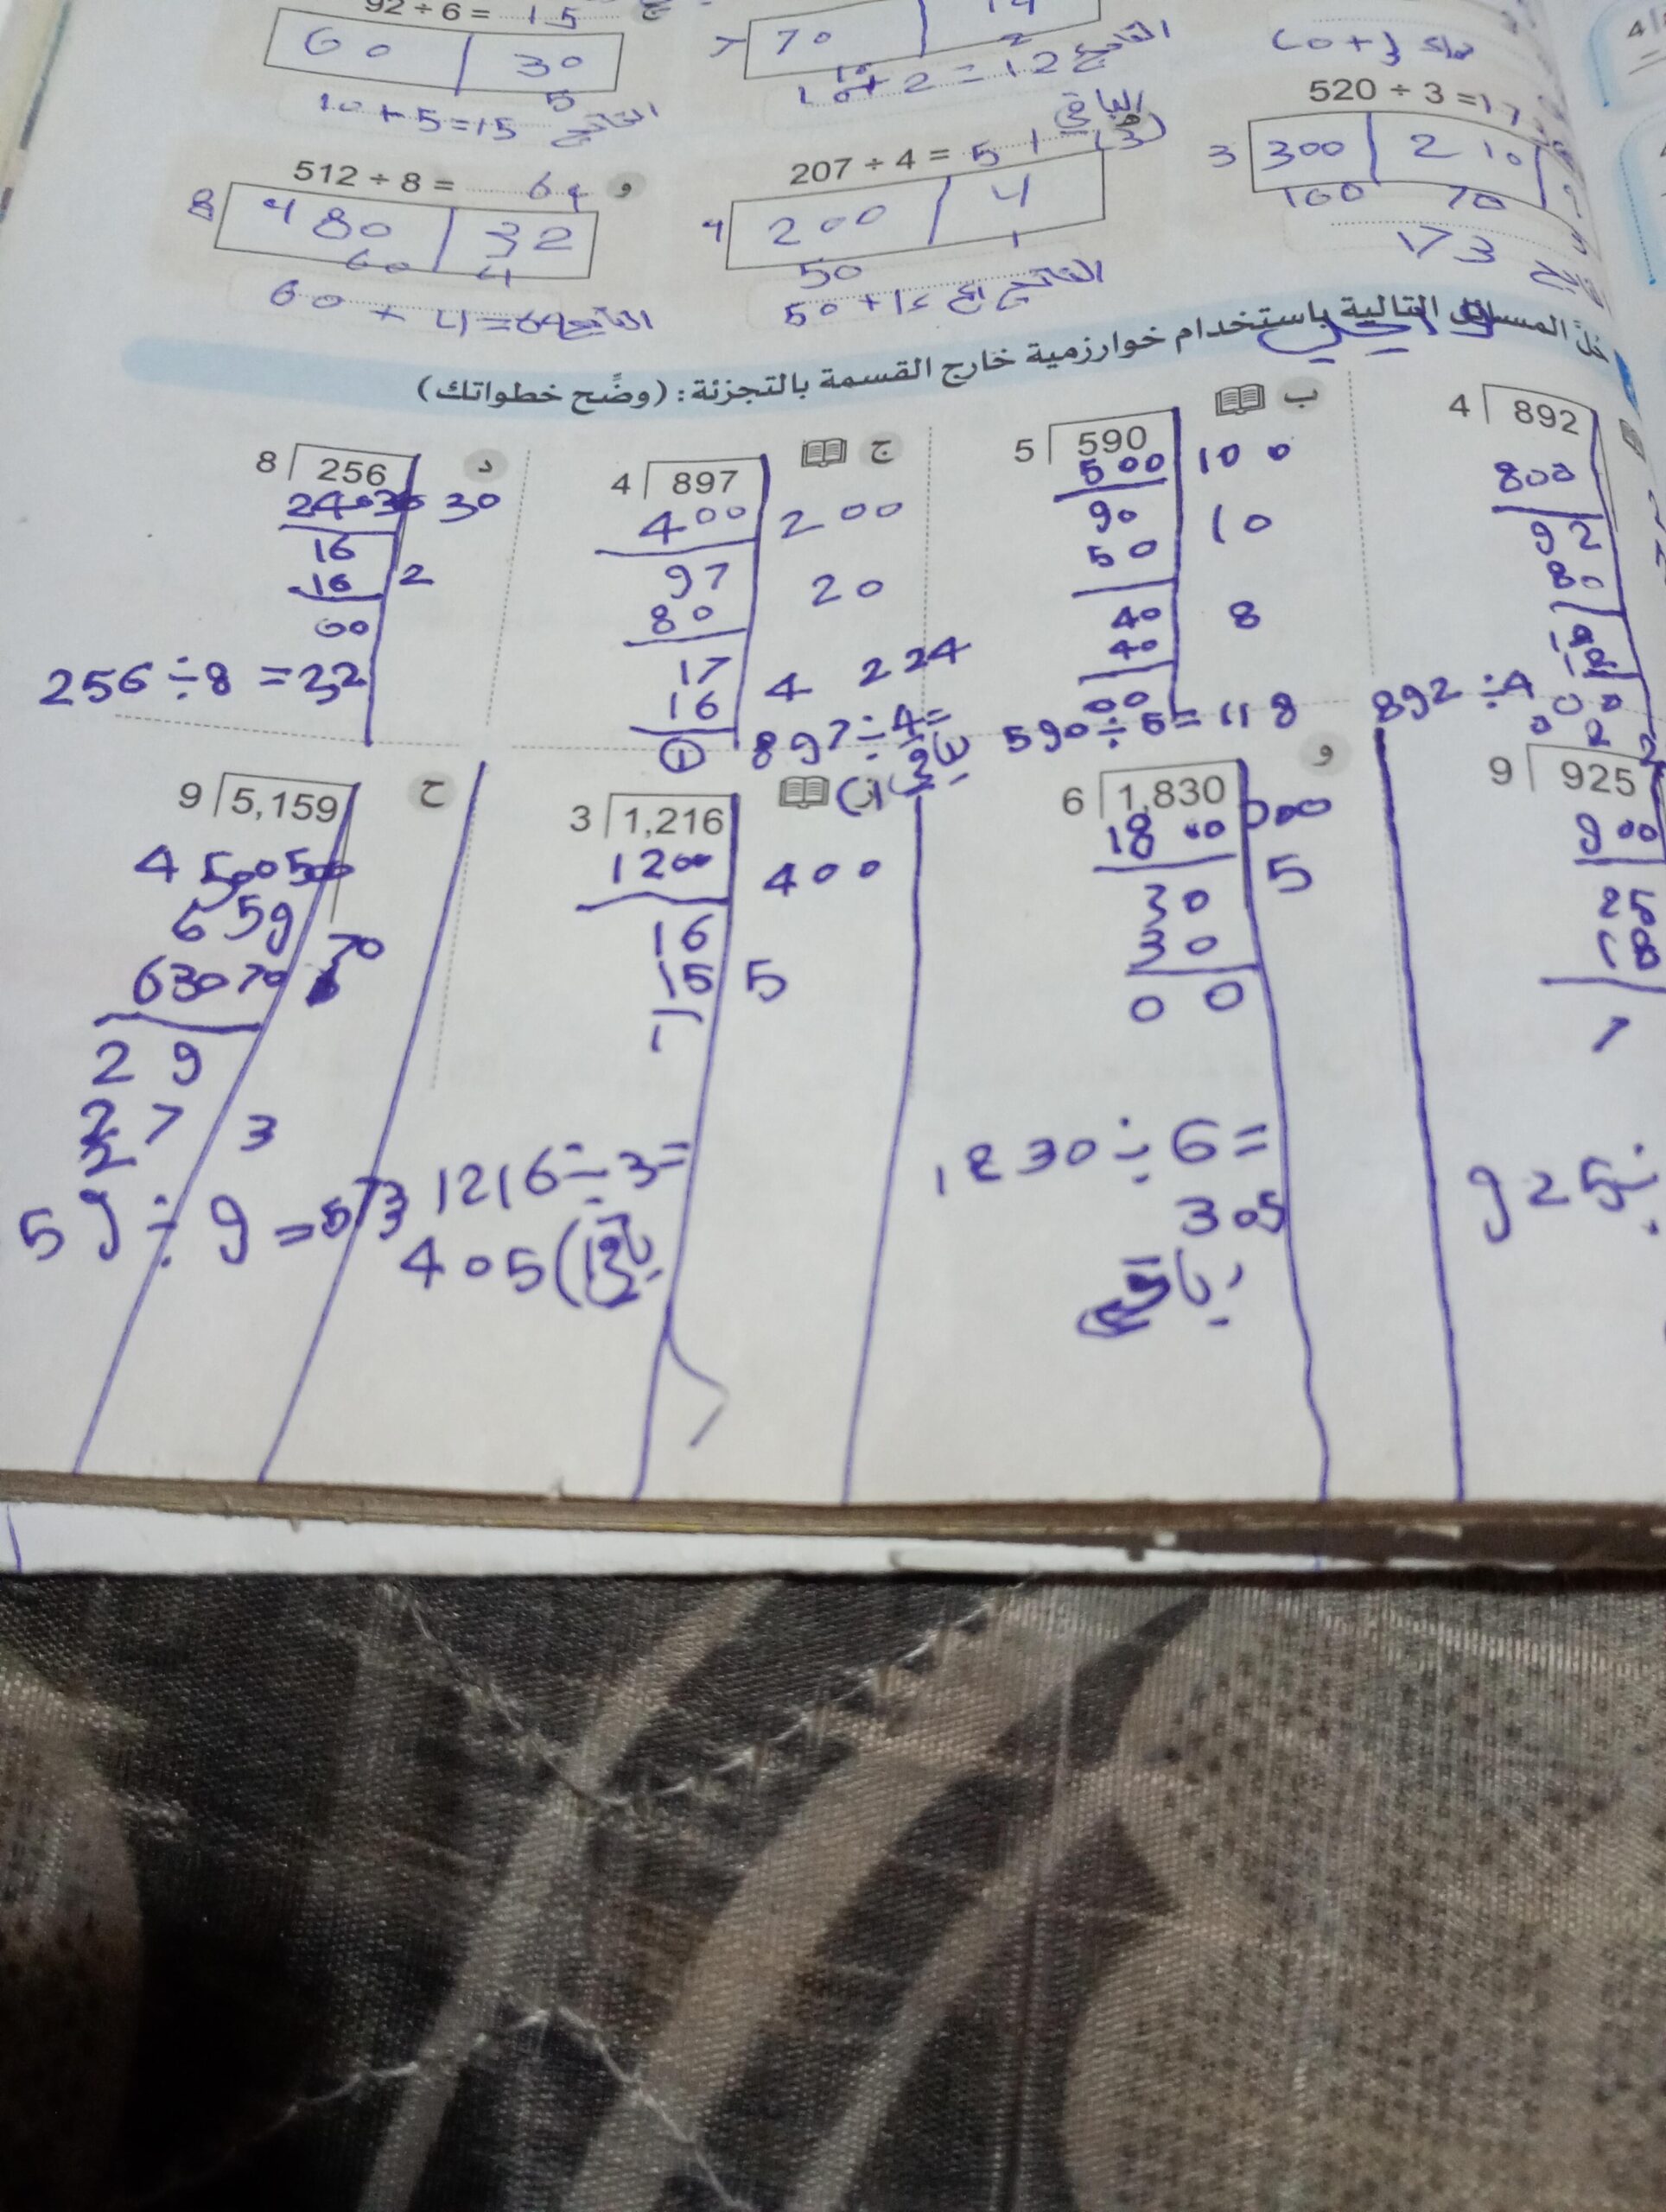 92 ÷ 6 = 15
60 30
10 + 5 = 15 الناتج
70
10 + 2 = 12 الناتج
520 ÷ 3 = 17
3 300 210
100 70
173
207 ÷ 4 = 51
الباقي (3)
4 200 4
50 1
512 ÷ 8 = 64
و
8 480 32
60 4
60 + 4 = 64 الناتج
حل المسائل التالية باستخدام خوارزمية خارج القسمة بالتجزئة: (وضَّح خطواتك)
4 892
800
92
80
12
12
892 ÷ 4
ب
5 590
500 100
90 10
50
40 8
40
00
590 ÷ 5 = 118
ج
4 897
400 200
97 20
80
17
16 4 224
1
897 ÷ 4 =
باقي (1)
د
8 256
240 30 30
16
16 2
00
256 ÷ 8 = 32
9 925
900
25
18
7
925 ÷
و
6 1,830
1800
30 5
30
0 0
1830 ÷ 6 =
305
باقي
3 1,216
1200 400
16
15 5
1
1216 ÷ 3 =
405 (1
ح
9 5,159
4500 500
659
630 70 70
29
27 3
2
59 ÷ 9 = 573